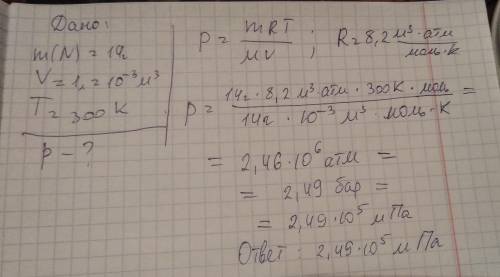 Дано:
m(N) = 14г
V = 1л = 10⁻³ м³
T = 300 K
p - ?
p = mRT / MV ; R = 8,2 м³·атм / моль·К
p = 14г · 8,2 м³·атм · 300К · моль / 14г · 10⁻³ м³ · моль·К =
= 2,46·10⁶ атм =
= 2,49 бар =
= 2,49·10⁵ мПа
Ответ: 2,49·10⁵ мПа